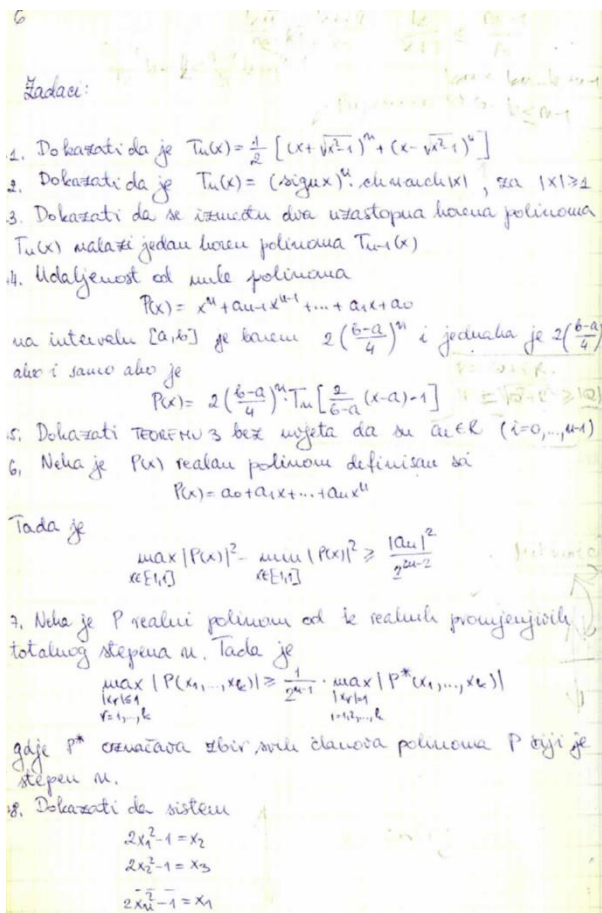 6
Zadaci:
1. Dokazati da je Tn(x) = 1/2 [(x+√x²-1)ⁿ + (x-√x²-1)ⁿ]
2. Dokazati da je Tn(x) = (sign x)ⁿ · ch n arch|x| , za |x|≥1
3. Dokazati da se između dva uzastopna korena polinoma
Tn(x) nalazi jedan koren polinoma Tn-1(x)
4. Udaljenost od nule polinoma
P(x) = xⁿ + an-1 xⁿ⁻¹ + ... + a1x + a0
na intervalu [a,b] je barem 2((b-a)/4)ⁿ i jednaka je 2((b-a)/4)
ako i samo ako je
P(x) = 2((b-a)/4)ⁿ · Tn[2/(b-a) (x-a)-1]
5. Dokazati TEOREMU 3 bez uvjeta da su ai∈R (i=0,...,n-1)
6. Neka je P(x) realan polinom definisan sa
P(x) = a0 + a1x + ... + anxⁿ
Tada je
max |P(x)|² - min |P(x)|² ≥ |an|²/2²ⁿ⁻²
x∈[-1,1] x∈[-1,1]
7. Neka je P realni polinom od k realnih promjenjivih
totalnog stepena n. Tada je
max |P(x1,...,xk)| ≥ 1/2ⁿ⁻¹ · max |P*(x1,...,xk)|
|xr|≤1 |xr|=1
r=1,...,k i=1,2,...,k
gdje P* označava zbir svih članova polinoma P čiji je
stepen n.
8. Dokazati da sistem
2x1²-1 = x2
2x2²-1 = x3
2xn²-1 = x1